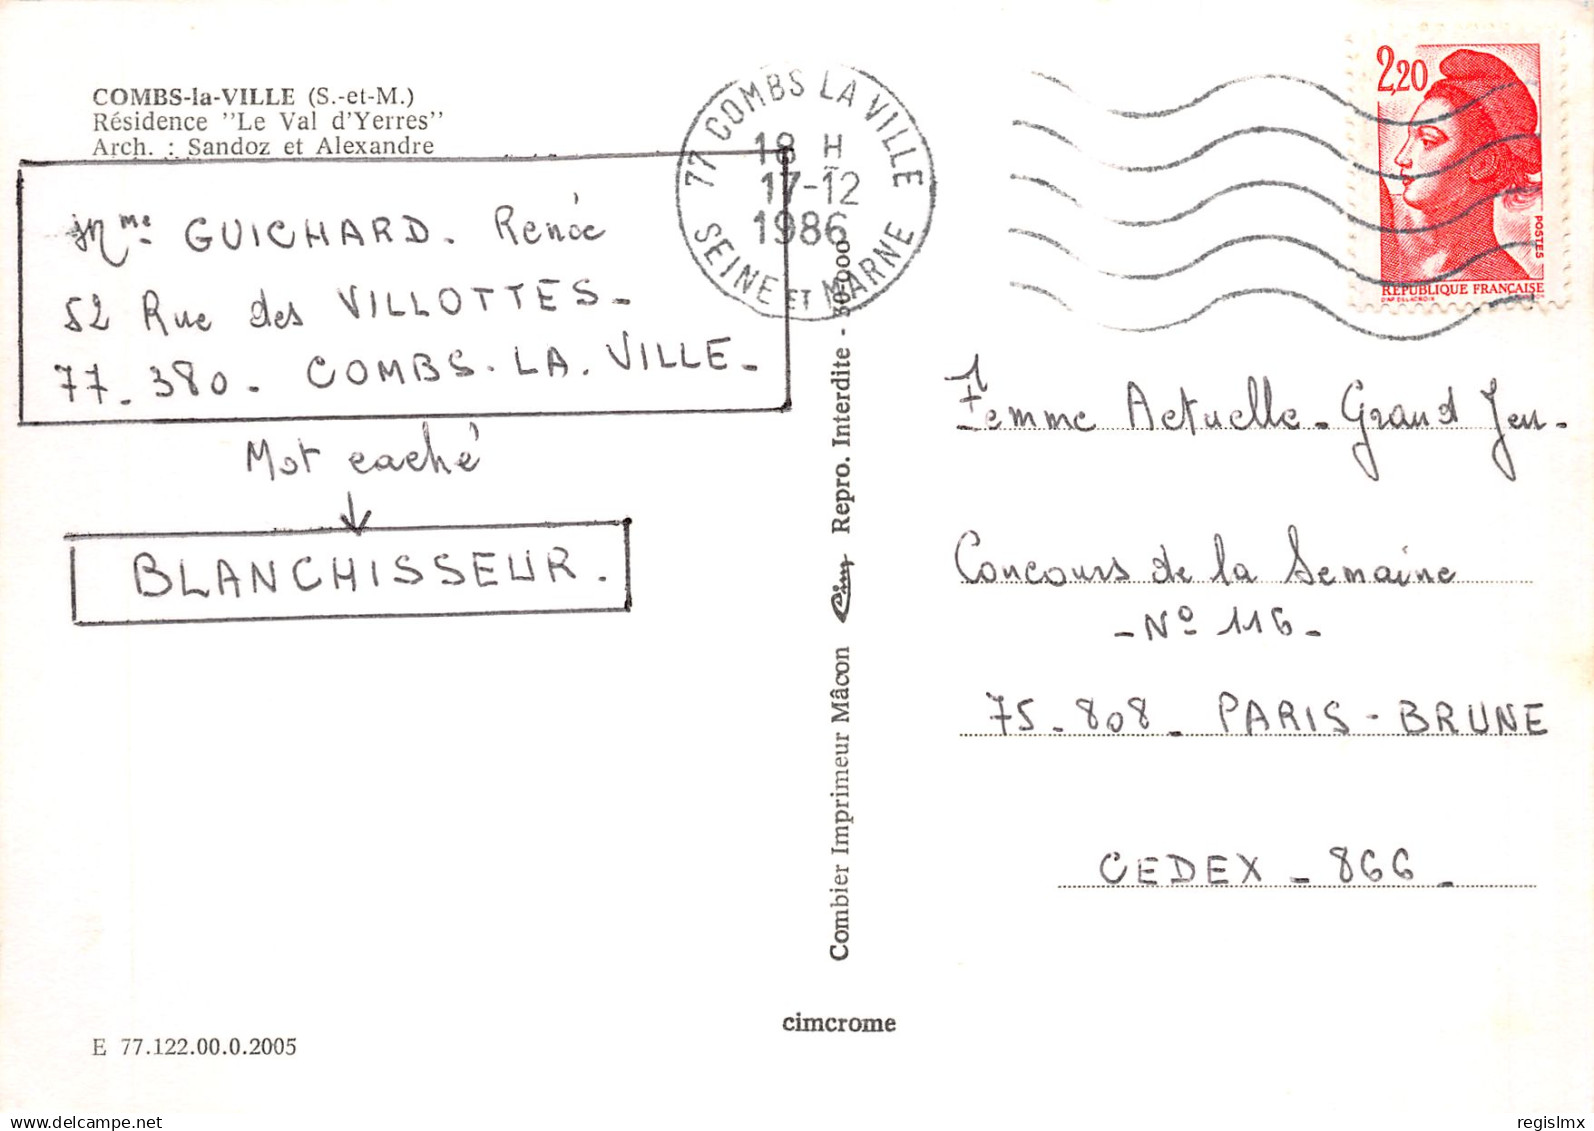 COMBS-la-VILLE (S.-et-M.)
Résidence "Le Val d'Yerres"
Arch. : Sandoz et Alexandre
Mme GUICHARD. Renée
52 Rue des VILLOTTES-
77-380- COMBS-LA-VILLE-
Mot caché
BLANCHISSEUR.
E 77.122.00.0.2005
77 COMBS LA VILLE
18 H
17-12
1986
SEINE ET MARNE
Combier Imprimeur Mâcon Cim Repro. Interdite - 30-000
cimcrome
2,20
POSTES
RÉPUBLIQUE FRANÇAISE
D'AP. DELACROIX
Femme Actuelle - Grand Jeu -
Concours de la Semaine
- N° 116 -
75-808- PARIS-BRUNE
CEDEX - 866 -
regislmx